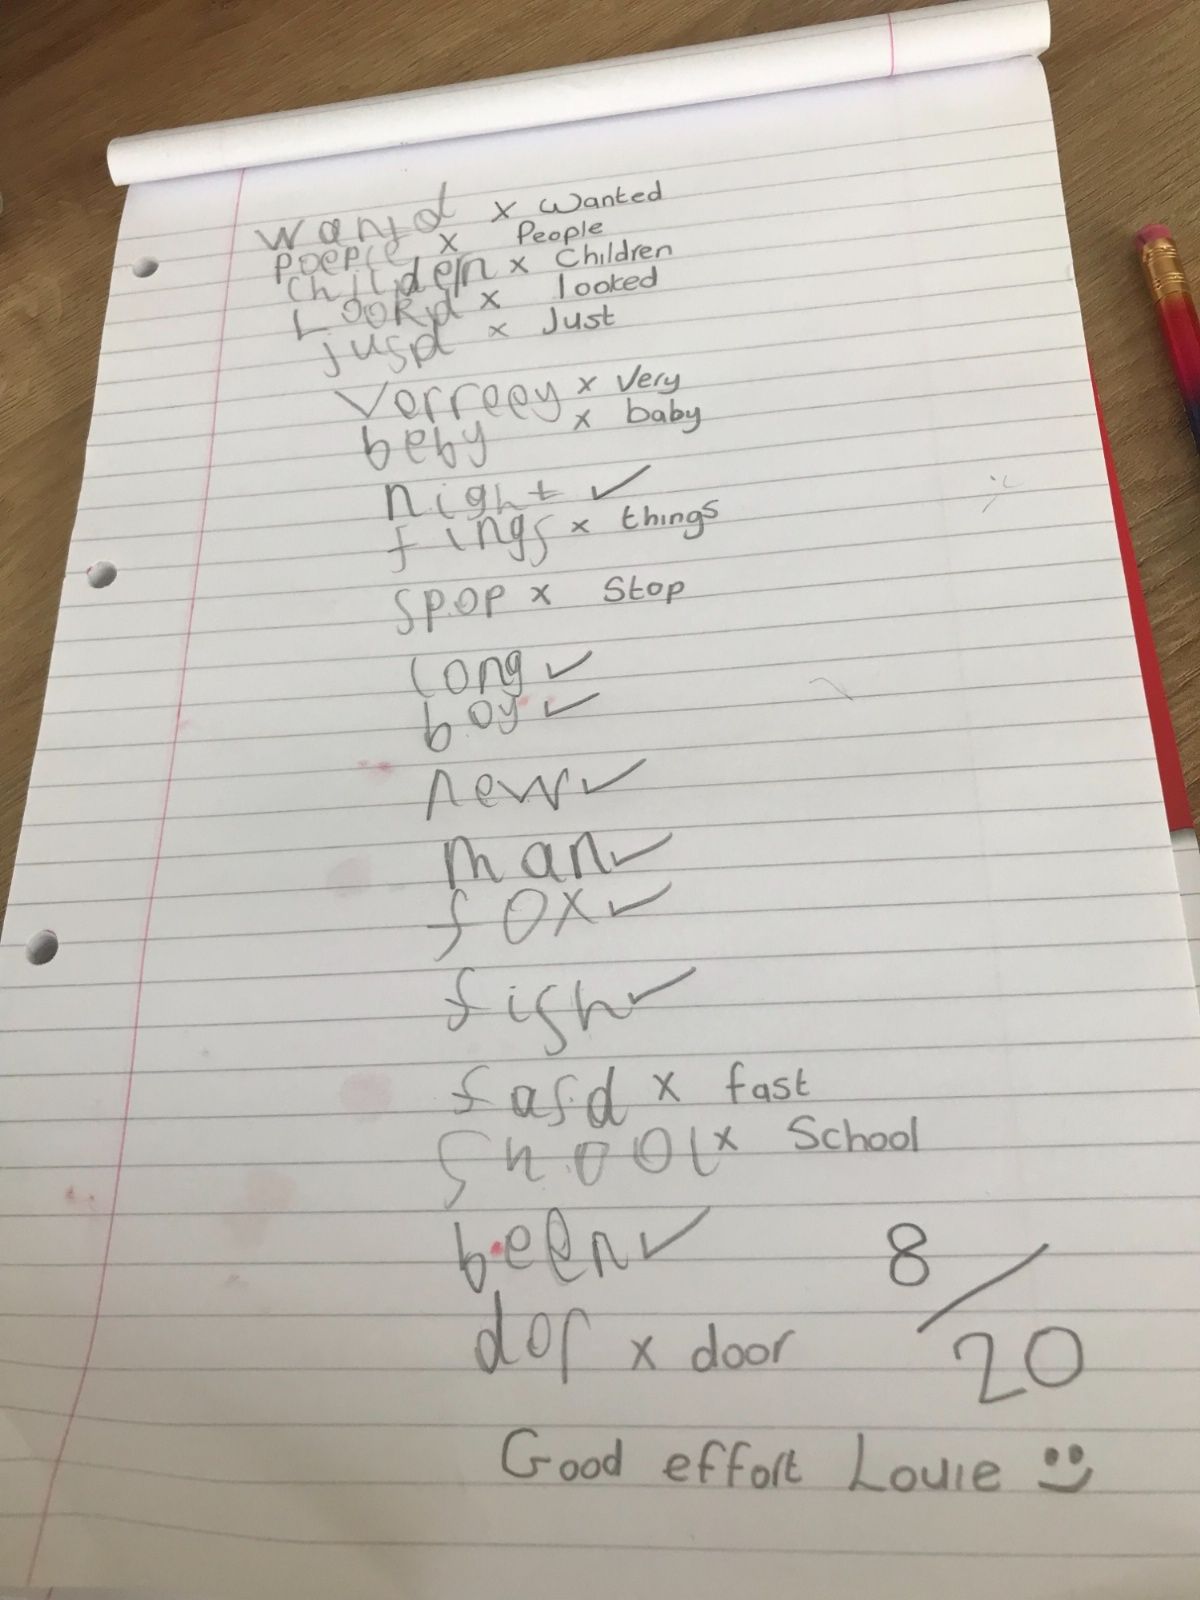 wantd x Wanted
poeple x People
childern x Children
Lookd x looked
jusd x Just
Verreey x Very
beby x baby
night ✓
fings x things
spop x Stop
long ✓
boy ✓
new ✓
man ✓
fox ✓
fish ✓
fasd x fast
Shool x School
been ✓
8/20
dor x door
Good effort Louie